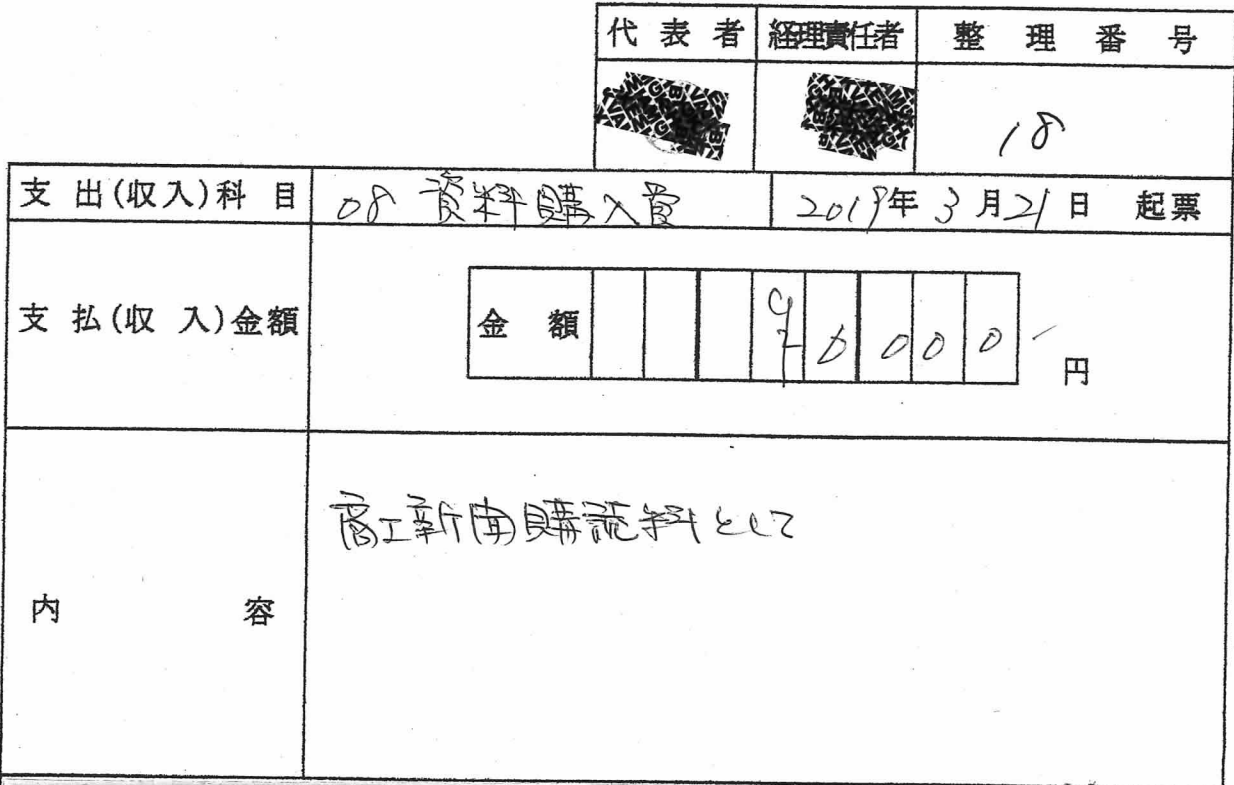 代表者 経理責任者 整理番号
18
支出(収入)科目 08 資料購入費 2019年3月21日 起票
支払(収入)金額 金額 6000 円
商工新聞購読料として
内容